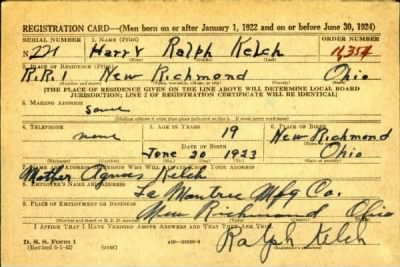 REGISTRATION CARD—(Men born on or after January 1, 1922 and on or before June 30, 1924)
SERIAL NUMBER 1. NAME (Print) ORDER NUMBER
N 221 Harry Ralph Kelch
(First) (Middle) (Last)
2. PLACE OF RESIDENCE (Print)
R.R.1 New Richmond Ohio
[THE PLACE OF RESIDENCE GIVEN ON THE LINE ABOVE WILL DETERMINE LOCAL BOARD
JURISDICTION; LINE 2 OF REGISTRATION CERTIFICATE WILL BE IDENTICAL]
3. MAILING ADDRESS
same
4. TELEPHONE 5. AGE IN YEARS 6. PLACE OF BIRTH
none 19 New Richmond
DATE OF BIRTH
June 20 1923 Ohio
7. NAME AND ADDRESS OF PERSON WHO WILL ALWAYS KNOW YOUR ADDRESS
Mother Agnes Kelch
8. EMPLOYER'S NAME AND ADDRESS
Mfg Co.
9. PLACE OF EMPLOYMENT OR BUSINESS
New Richmond Ohio
I AFFIRM THAT I HAVE VERIFIED ABOVE ANSWERS AND THAT THEY ARE TRUE.
D. S. S. Form 1
(Revised 6-1-42)
Ralph Kelch